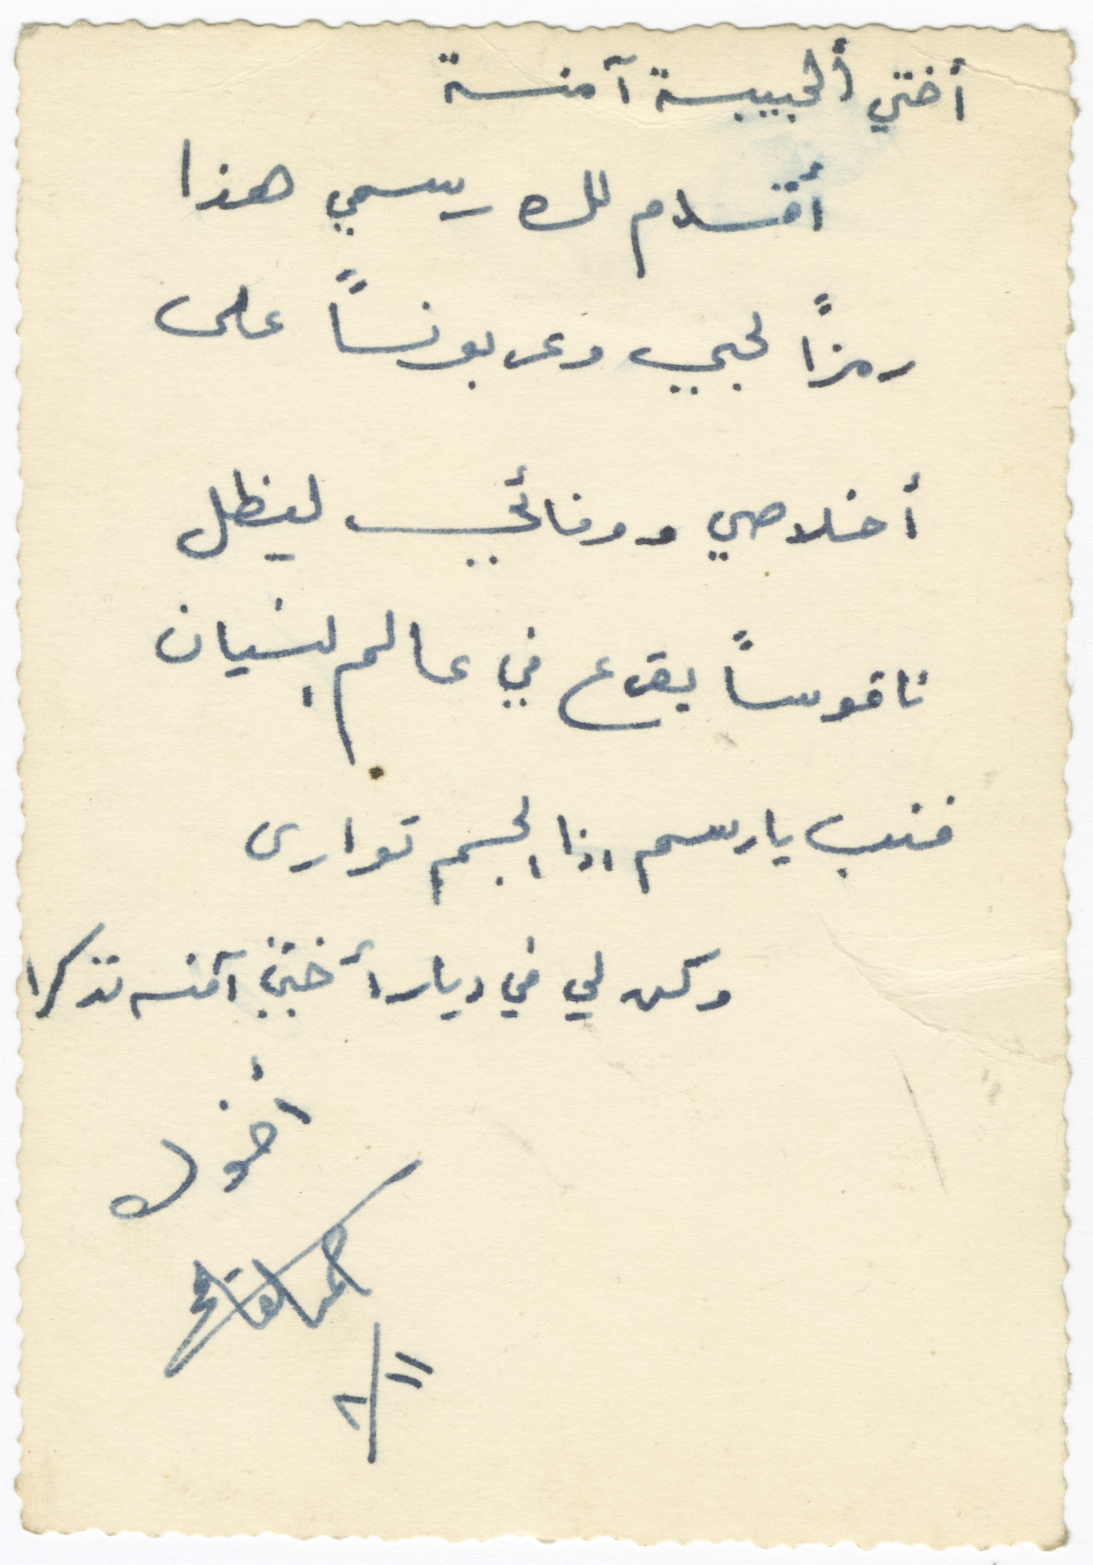 أختي ألحبيبة آمنة
أقدم لك رسمي هذا
رمزاً لحبي وعربوناً على
أخلاصي ووفائي ليظل
ناقوساً يقرع في عالم لنسيان
فنب يارسم اذا الجسم توارى
وكن لي في ديار أختي آمنه تذكرا
أخوك
١١/٢